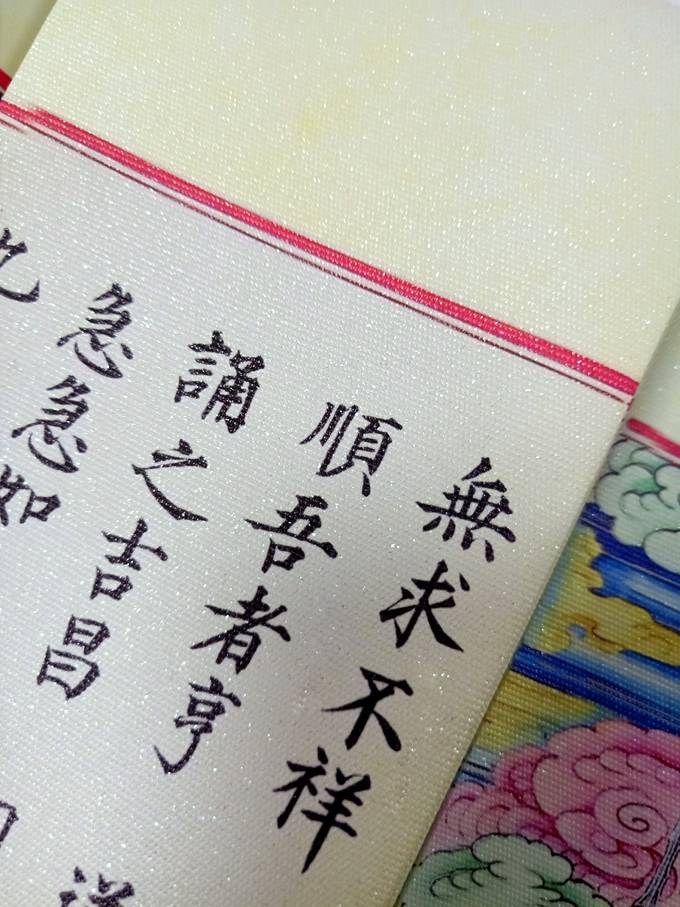 無求不祥
順吾者亨
誦之吉昌
急急如